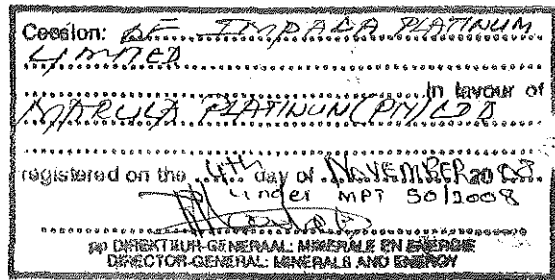 Cession: OF IMPALA PLATINUM
LIMITED
in favour of
MARULA PLATINUM (PTY) LTD
registered on the 4th day of NOVEMBER 2008
under MPT 50/2008
pp DIREKTEUR-GENERAAL: MINERALE EN ENERGIE
DIRECTOR-GENERAL: MINERALS AND ENERGY